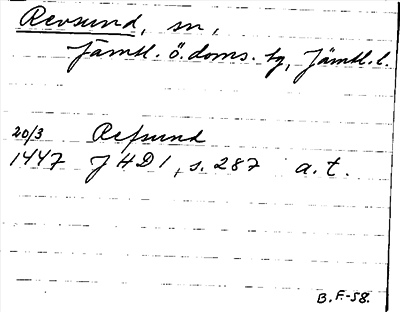 Revsund, sn,
Jämtl. ö. doms. tg, Jämtl. l.
20/3 Refsund
1447 JHD 1, s. 287 a. t.
B.F.-58.